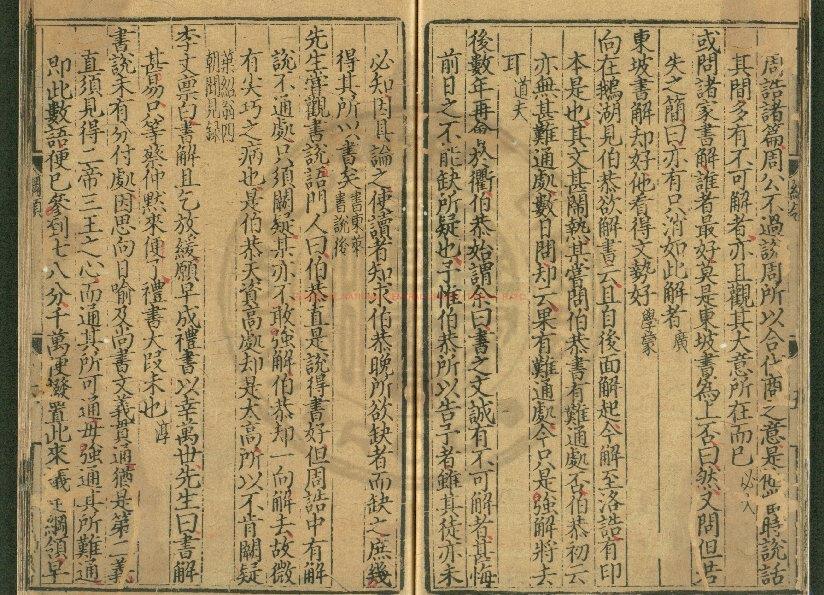 周誥諸篇周公不過說周所以合伐商之意是當時說話
其間多有不可解者亦且觀其大意所在而已必大
或問諸家書解誰者最好莫是東坡書為上否曰然又問但若
失之簡曰亦有只消如此解者廣
東坡書解却好他看得文勢好學蒙
向在鵝湖見伯恭欲解書云且自後面解起今解至洛誥有印
本是也其文甚鬧熱某嘗問伯恭書有難通處否伯恭初云
亦無甚難通處數日間却云果有難通處今只是強解將去
耳道夫
後數年再會於衢伯恭始謂余曰書之文誠有不可解者甚悔
前日之不能缺所疑也予惟伯恭所以告予者雖其徒亦未
必知因具論之使讀者知求伯恭晚所欲缺者而缺之庶幾
得其所以書矣書東萊書說後
先生嘗觀書說語門人曰伯恭直是說得書好但周誥中有解
說不通處只須闕疑某亦不敢強解伯恭却一向解去故微
有尖巧之病也是伯恭天資高處却是太高所以不肯闕疑
朝聞見錄
李文稟白書解且乞放緩願早成禮書以幸萬世先生曰書解
甚易只等蔡仲默來便了禮書大段未也淳
書說未有分付處因思向日喻及尚書文義貫通猶是第二義
直須見得二帝三王之心而通其所可通毋強通其所難通
即此數語便已參到七八分千萬便撥置此來議定綱領早
綱領